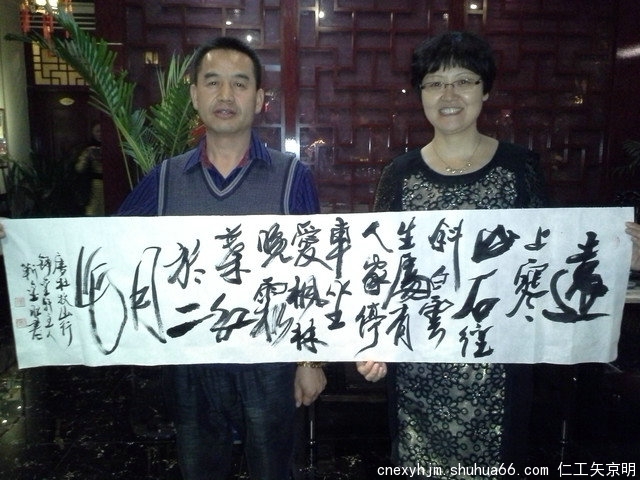 遠
上寒
山石徑
斜白雲
生處有
人家停
車坐
愛楓林
晚霜
葉紅
於二
月
花
唐杜牧山行
cnexyhjm.shuhua66.com 仁工矢京明